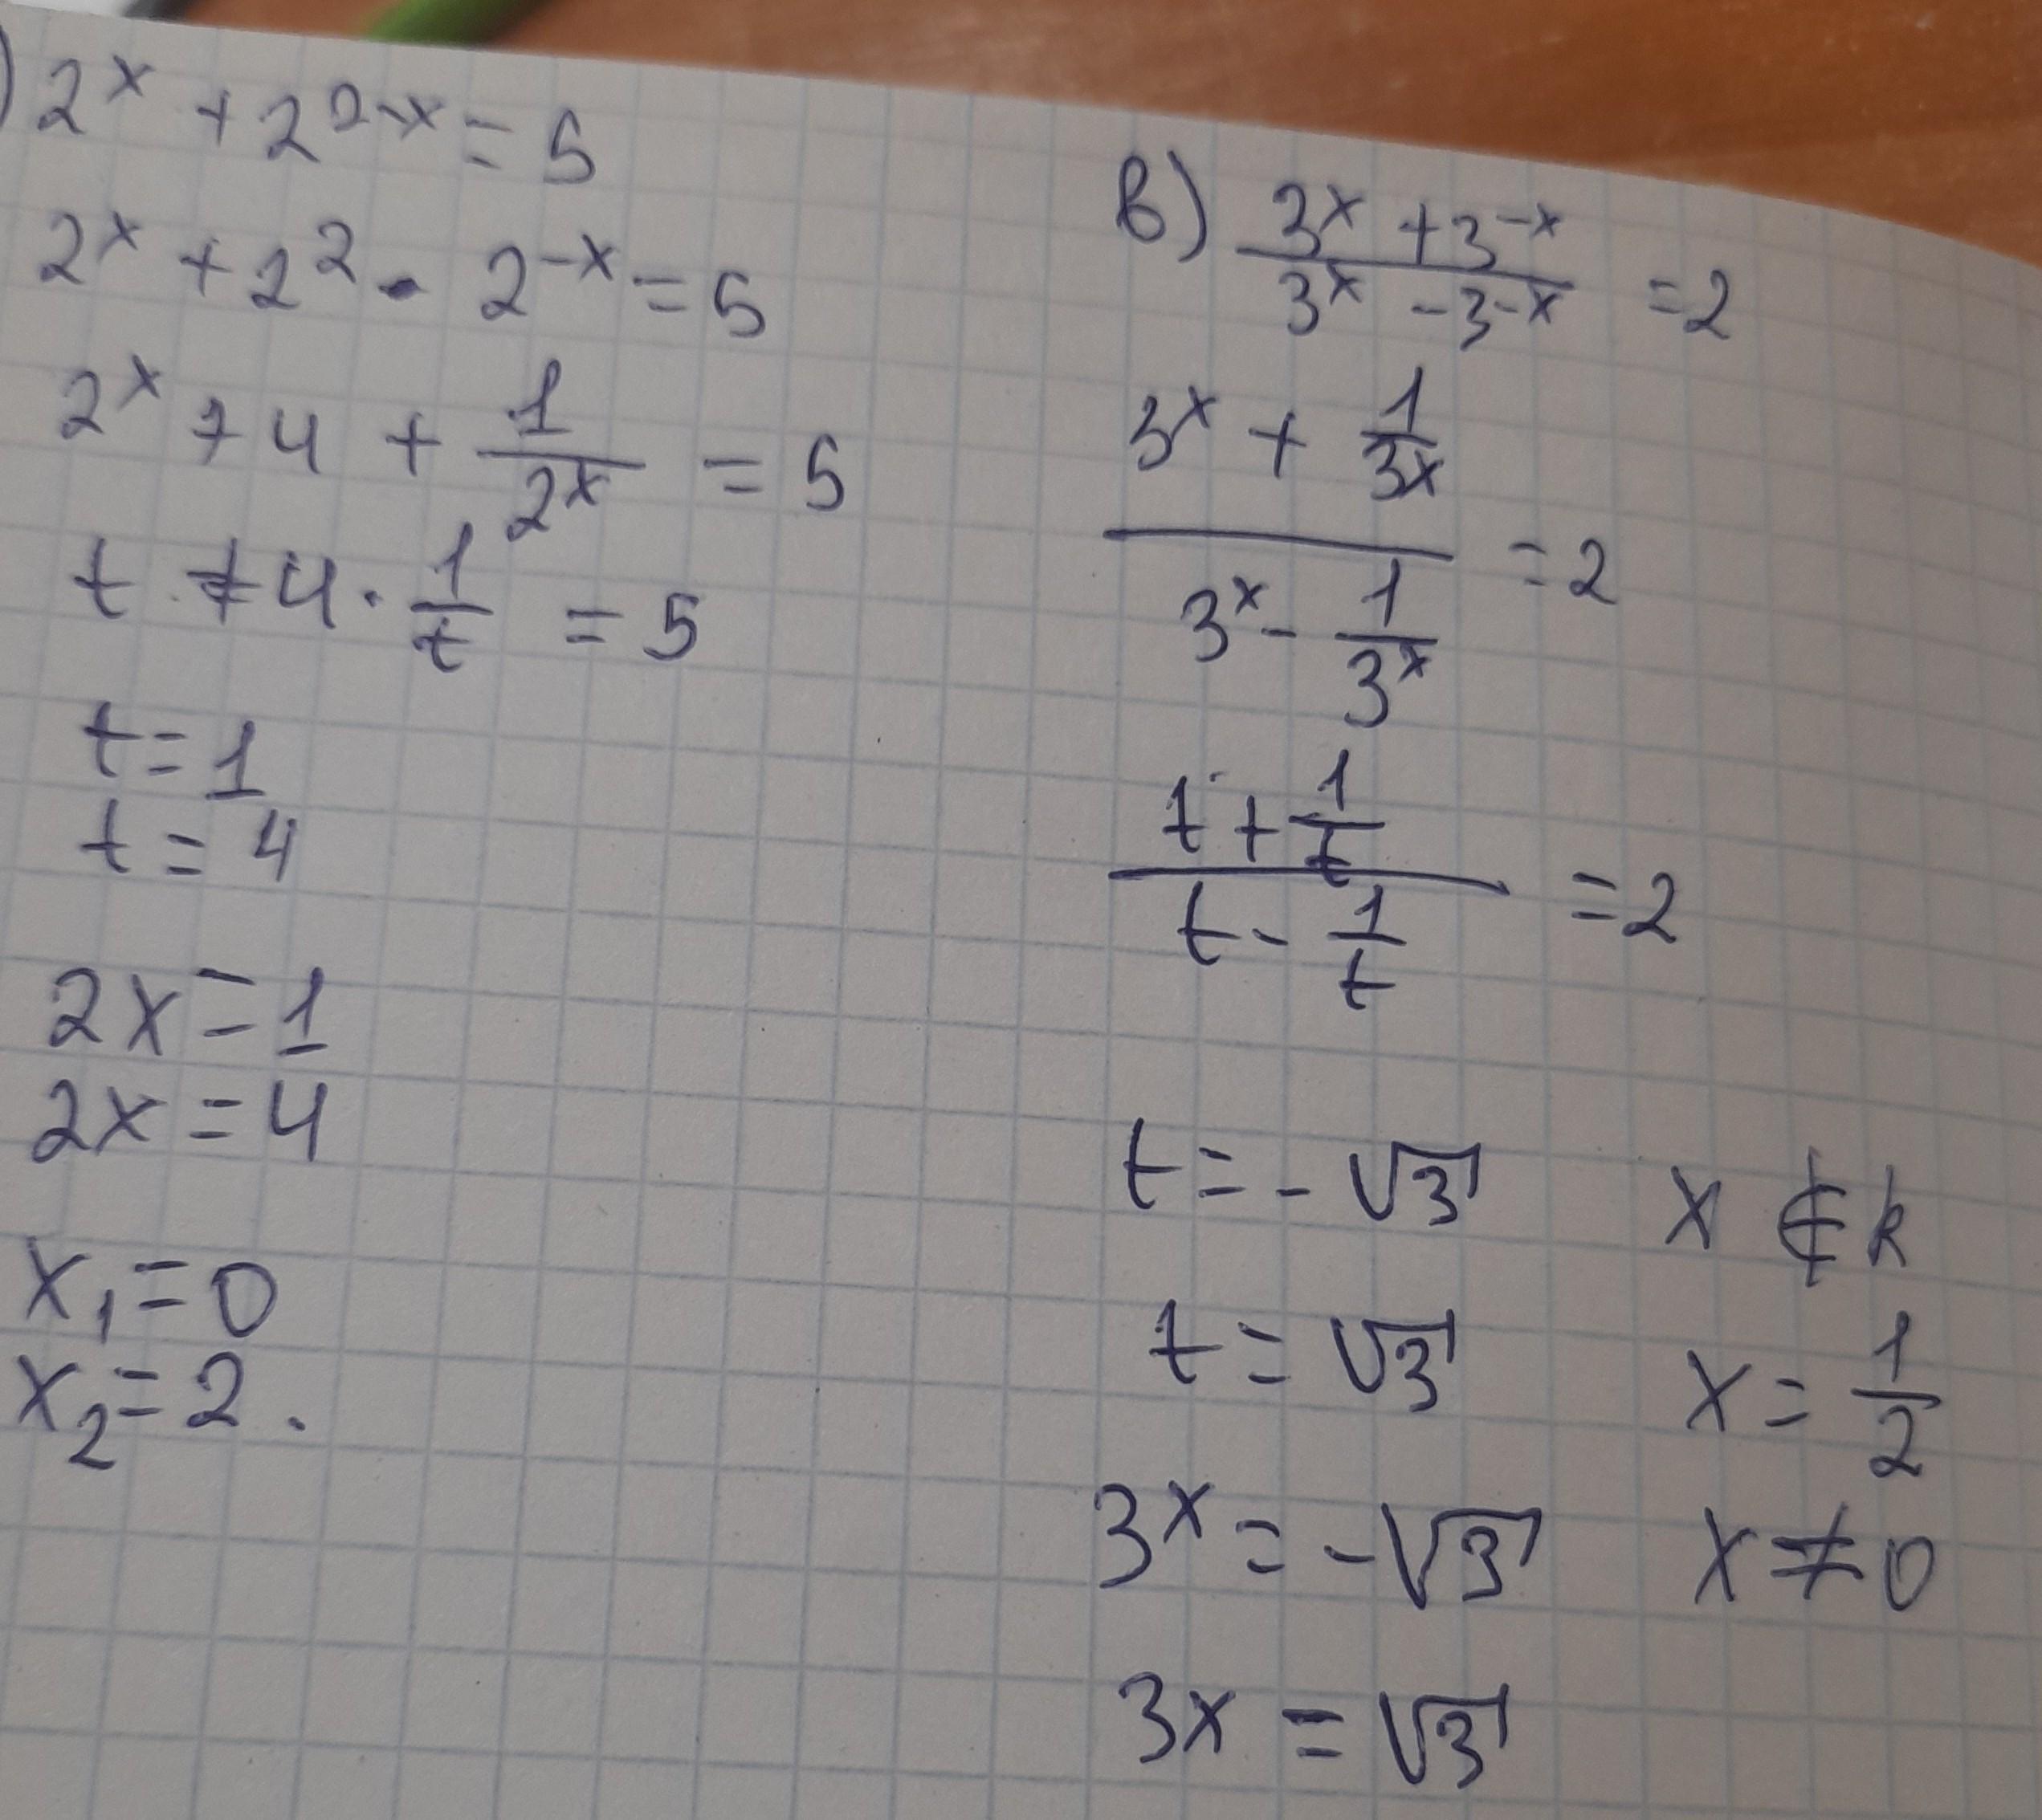 ) 2^x + 2^{2-x} = 5
2^x + 2^2 · 2^{-x} = 5
2^x + 4 + \frac{1}{2^x} = 5
t + 4 · \frac{1}{t} = 5
t = 1
t = 4
2x = 1
2x = 4
x_1 = 0
x_2 = 2.
в) \frac{3^x + 3^{-x}}{3^x - 3^{-x}} = 2
\frac{3^x + \frac{1}{3x}}{3^x - \frac{1}{3^x}} = 2
\frac{t + \frac{1}{t}}{t - \frac{1}{t}} = 2
t = -√3 x ∉ k
t = √3 x = \frac{1}{2}
3^x = -√3 x ≠ 0
3x = √3